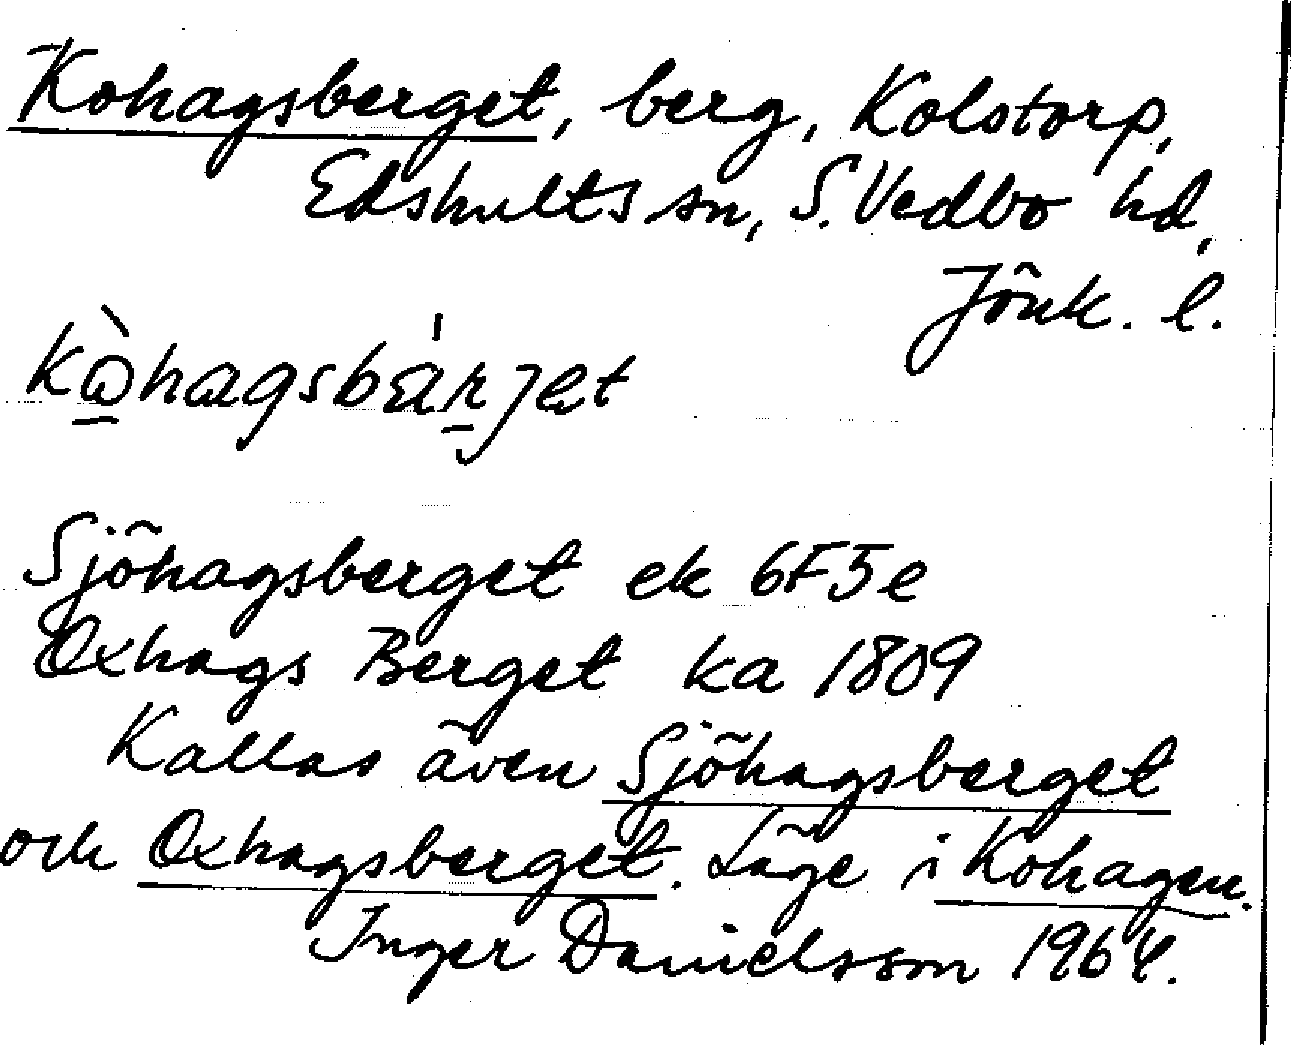 Kohagsberget, berg, Kolstorp,
Edshults sn, S. Vedbo hd,
Jönk. l.
kòhagsbärjet
Sjöhagsberget ek 6F5e
Oxhags Berget ka 1809
Kallas även Sjöhagsberget
och Oxhagsberget. Läge i Kohagen.
Inger Danielsson 1964.